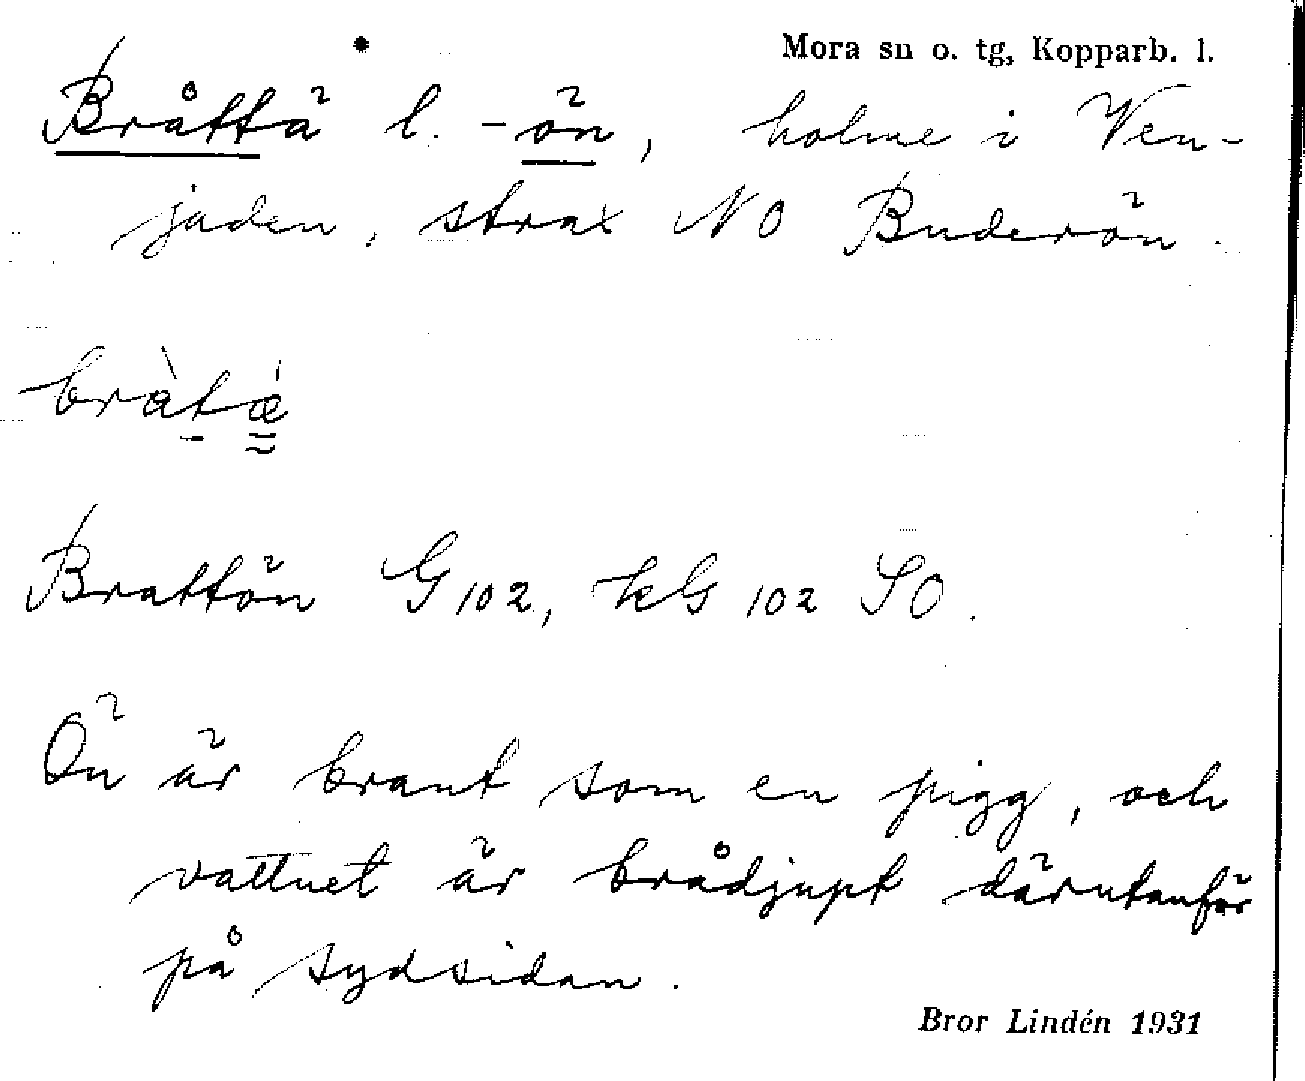 Mora sn o. tg, Kopparb. l.
Bråttä l. -ön, holme i Ven-
jaden, strax NO Buderön.
bràtǽ
Brattön G 102, kG 102 SO.
Ön är brant som en pigg, och
vattnet är brådjupt därutanför
på sydsidan.
Bror Lindén 1931